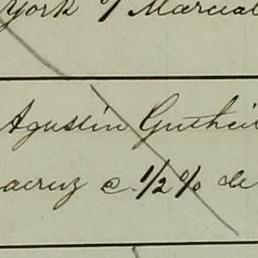 York % Marcial
Agustín Gutheil
acruz c. 1/2 % de